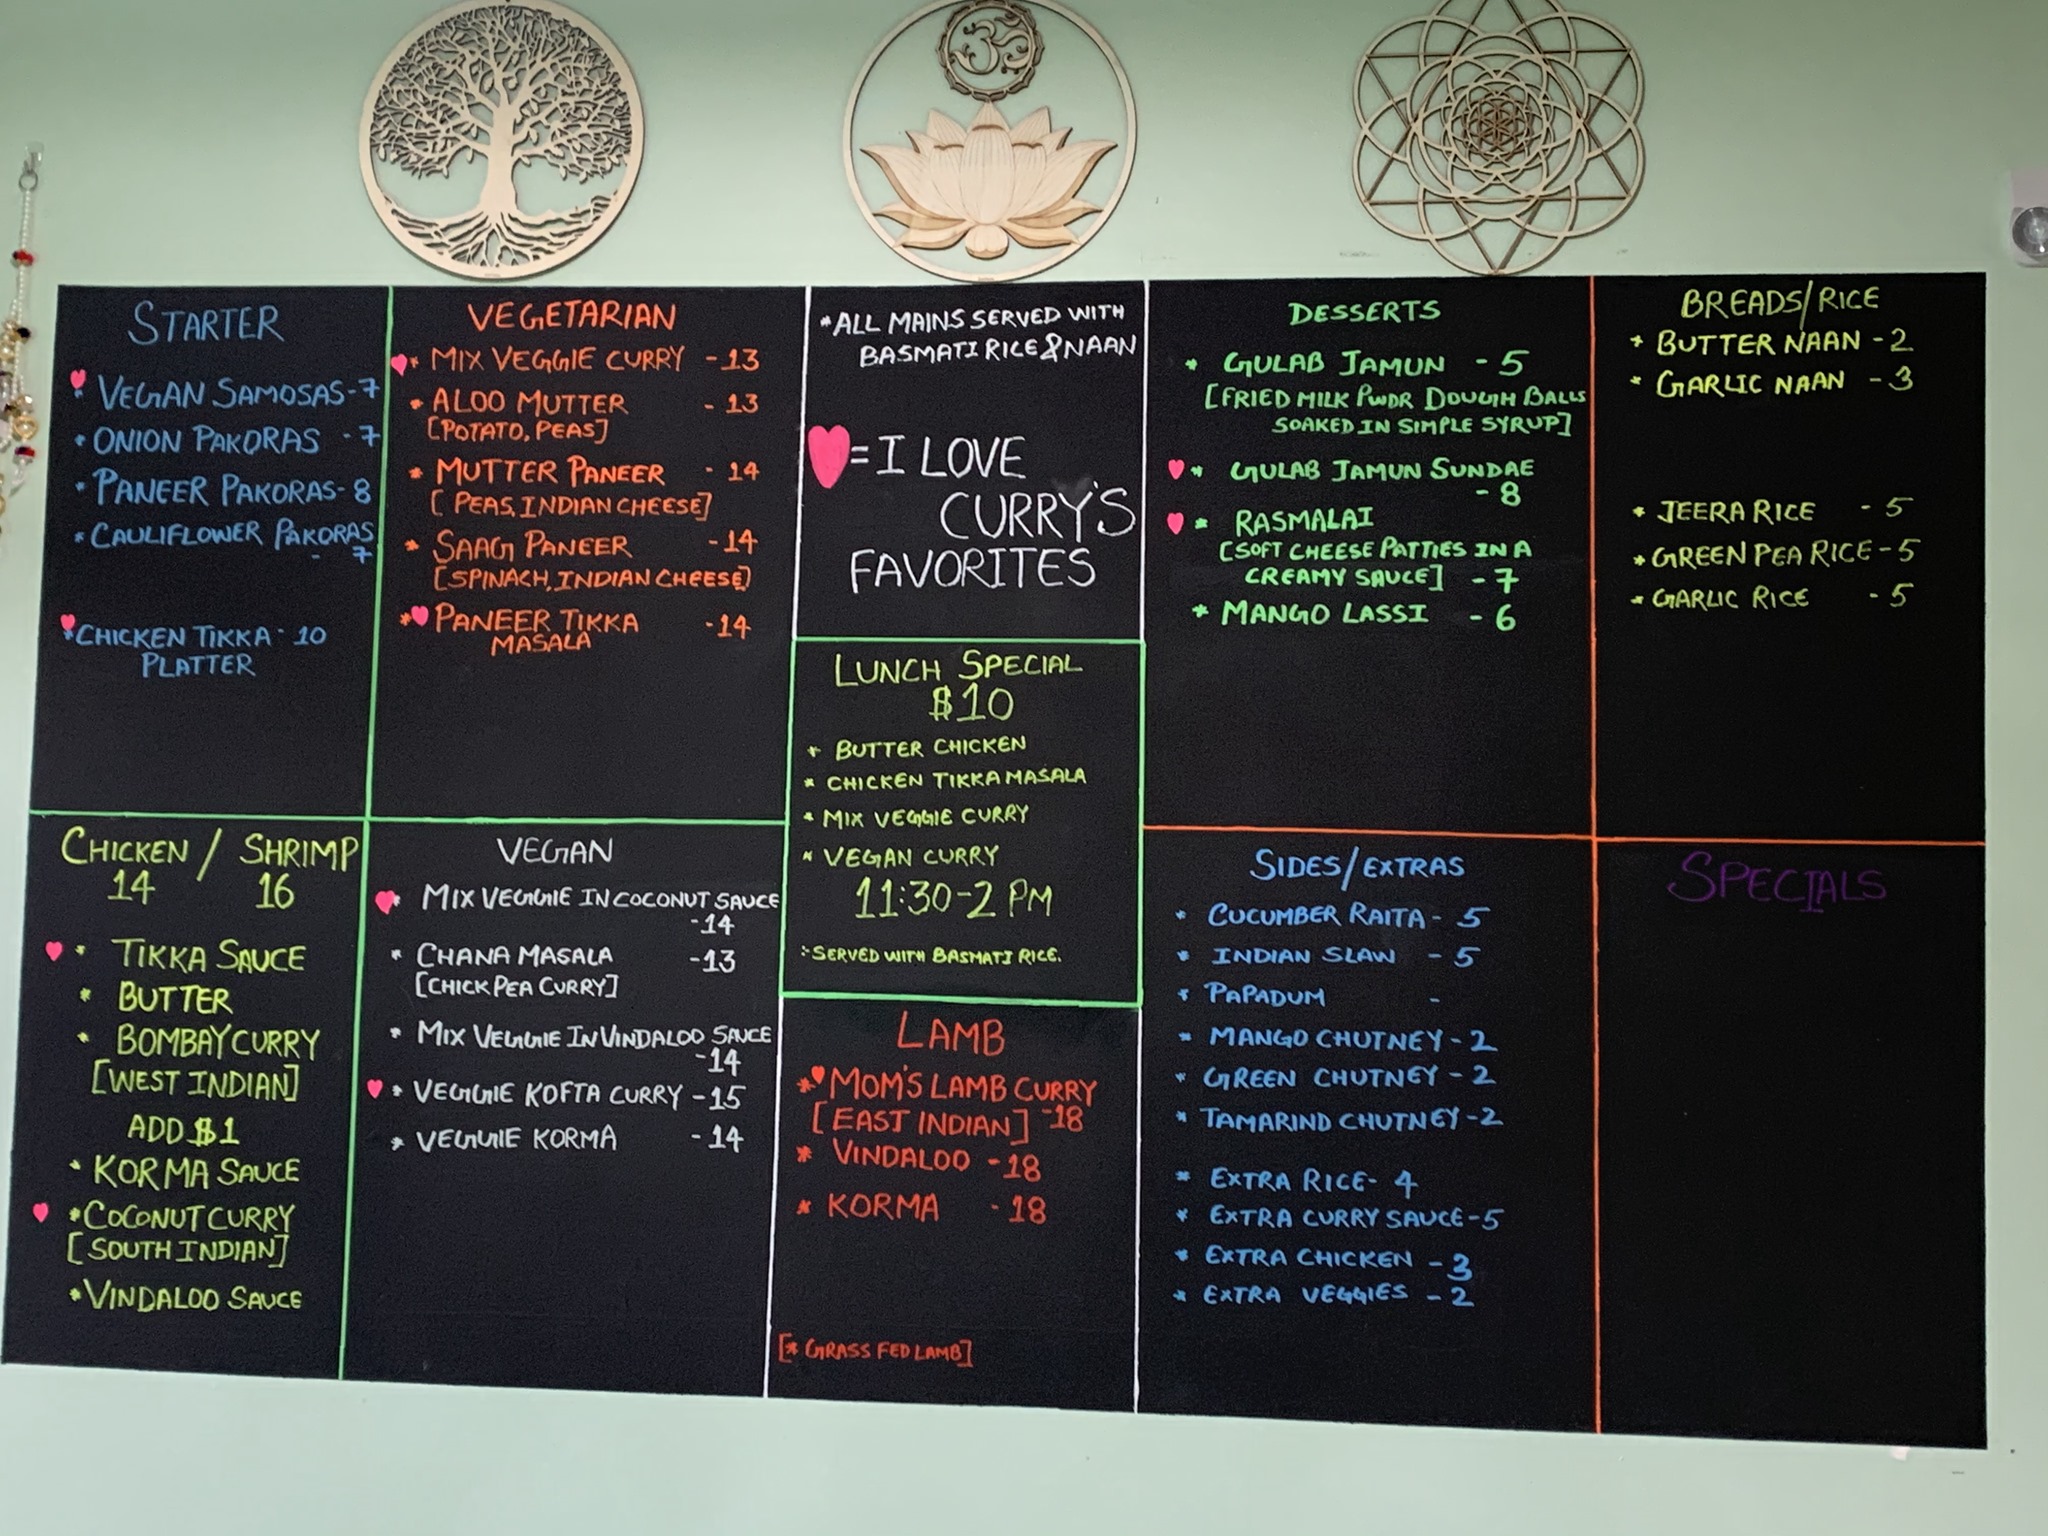 ॐ
STARTER
* VEGAN SAMOSAS-7
* ONION PAKORAS -7
* PANEER PAKORAS-8
* CAULIFLOWER PAKORAS
- 7
* CHICKEN TIKKA - 10
PLATTER
VEGETARIAN
* MIX VEGGIE CURRY -13
* ALOO MUTTER - 13
[POTATO, PEAS]
* MUTTER PANEER - 14
[PEAS, INDIAN CHEESE]
* SAAG PANEER -14
[SPINACH, INDIAN CHEESE]
* PANEER TIKKA -14
MASALA
*ALL MAINS SERVED WITH
BASMATI RICE & NAAN
= I LOVE
CURRY'S
FAVORITES
LUNCH SPECIAL
$10
* BUTTER CHICKEN
* CHICKEN TIKKA MASALA
* MIX VEGGIE CURRY
* VEGAN CURRY
11:30-2 PM
*SERVED WITH BASMATI RICE.
DESSERTS
* GULAB JAMUN - 5
[FRIED MILK PWDR DOUGH BALLS
SOAKED IN SIMPLE SYRUP]
* GULAB JAMUN SUNDAE
- 8
* RASMALAI
[SOFT CHEESE PATTIES IN A
CREAMY SAUCE] - 7
* MANGO LASSI - 6
BREADS/RICE
* BUTTER NAAN - 2
* GARLIC NAAN - 3
* JEERA RICE - 5
* GREEN PEA RICE - 5
* GARLIC RICE - 5
CHICKEN / SHRIMP
14 16
* TIKKA SAUCE
* BUTTER
* BOMBAY CURRY
[WEST INDIAN]
ADD $1
* KORMA SAUCE
* COCONUT CURRY
[SOUTH INDIAN]
* VINDALOO SAUCE
VEGAN
* MIX VEGGIE IN COCONUT SAUCE
-14
* CHANA MASALA -13
[CHICK PEA CURRY]
* MIX VEGGIE IN VINDALOO SAUCE
-14
* VEGGIE KOFTA CURRY -15
* VEGGIE KORMA -14
LAMB
* MOM'S LAMB CURRY
[EAST INDIAN] -18
* VINDALOO -18
* KORMA - 18
[* GRASS FED LAMB]
SIDES/EXTRAS
* CUCUMBER RAITA - 5
* INDIAN SLAW - 5
* PAPADUM -
* MANGO CHUTNEY - 2
* GREEN CHUTNEY - 2
* TAMARIND CHUTNEY -2
* EXTRA RICE - 4
* EXTRA CURRY SAUCE -5
* EXTRA CHICKEN - 3
* EXTRA VEGGIES - 2
SPECIALS